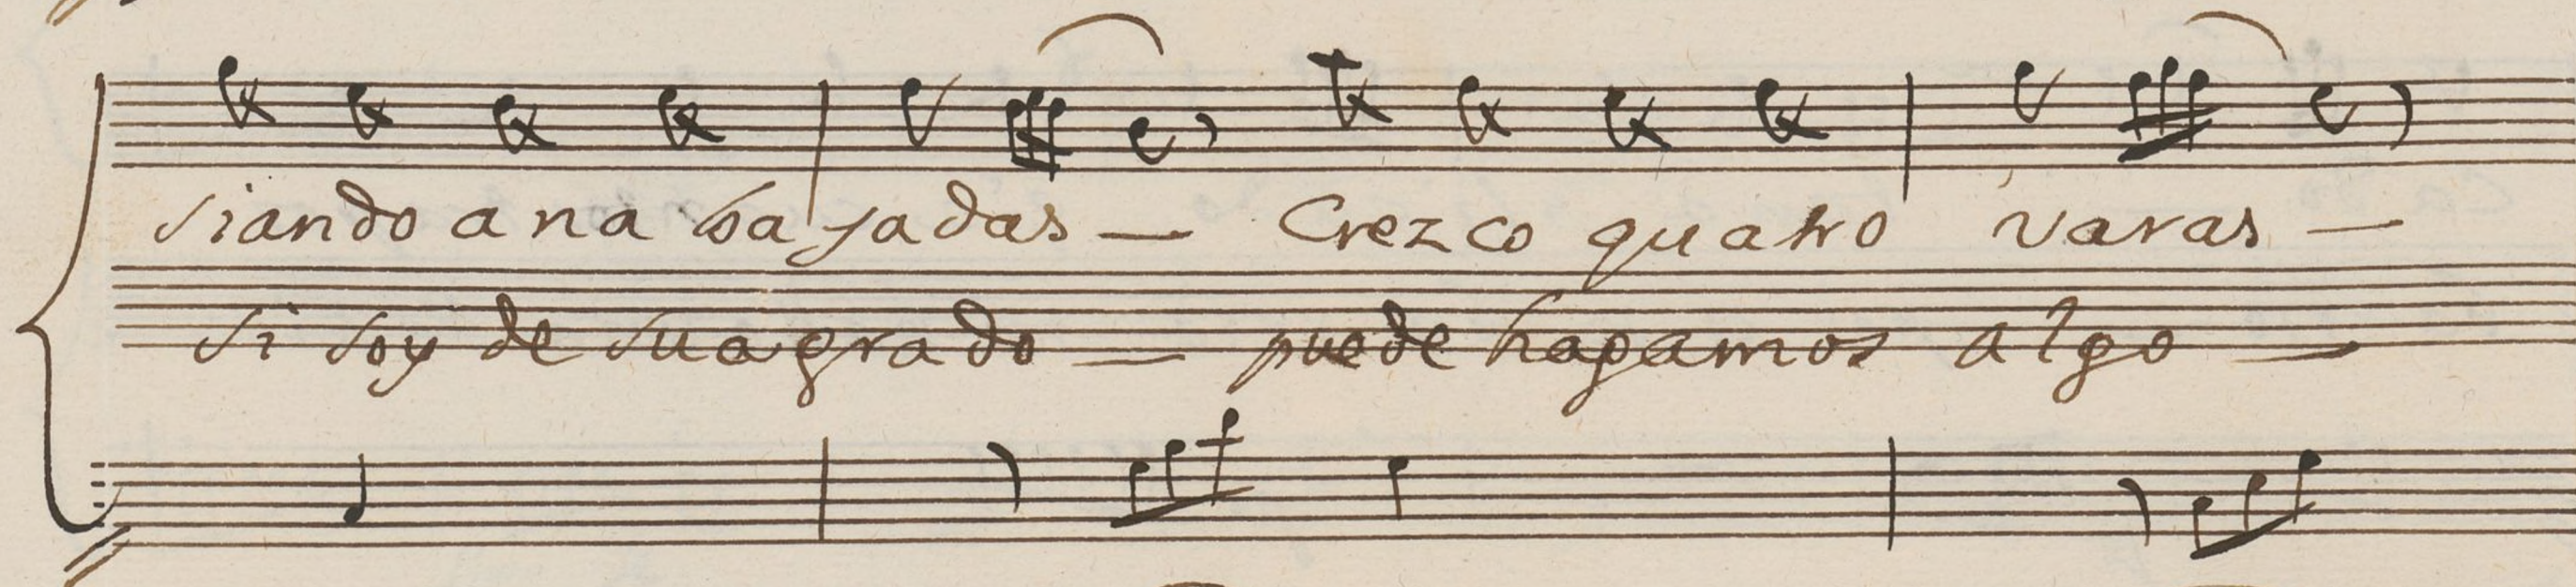 siando a na ba ja das — Crez co quatro varas —
si soy de su a gra do — puede hagamos algo —